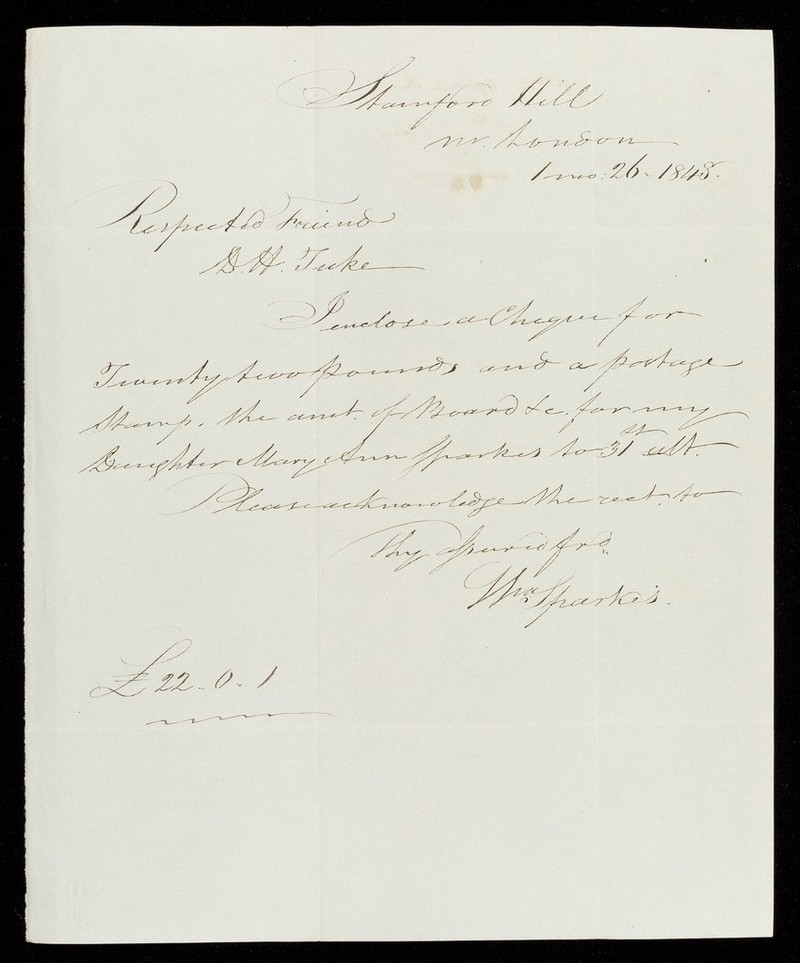 Stamford Hill
nr. London
1 mo: 26. 1848.
Respected Friend
D. H. Tuke
I enclose a Cheque for
Twenty two pounds and a postage
Stamp, the amt. of Board &c. for my
Daughter Mary Ann Sparkes to 31st ult.
Please acknowledge the rect. to
Thy frd.
Wm Sparkes.
£22 - 0 - 1